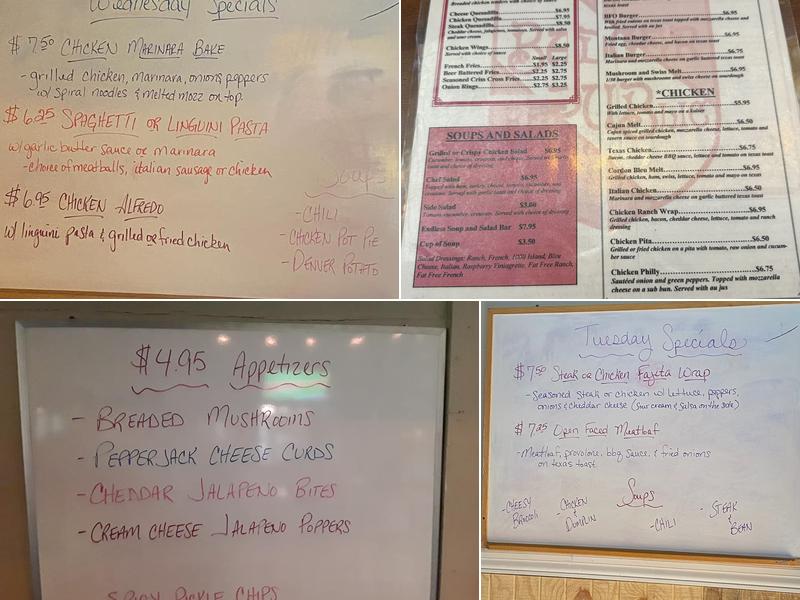 Wednesday Specials
$7.50 CHICKEN MARINARA BAKE
- grilled chicken, marinara, onions, peppers
w/ spiral noodles & melted mozz on top.
$6.25 SPAGHETTI OR LINGUINI PASTA
w/garlic butter sauce or marinara
- choice of meatballs, italian sausage or chicken
$6.95 CHICKEN ALFREDO
w/ linguini pasta & grilled or fried chicken
Soups
- CHILI
- CHICKEN POT PIE
- DENVER POTATO
Breaded chicken tenders with choice of sauce
Cheese Quesadilla $6.95
Chicken Quesadilla $7.95
Steak Quesadilla $8.50
Cheddar cheese, jalapenos, tomatoes. Served with salsa
and sour cream
Chicken Wings $8.50
Served with choice of sauce
Small Large
French Fries $1.95 $2.25
Beer Battered Fries $2.25 $2.75
Seasoned Criss Cross Fries $2.25 $2.75
Onion Rings $2.75 $3.25
SOUPS AND SALADS
Grilled or Crispy Chicken Salad $6.95
and choice of dressing
Chef Salad $6.95
Topped with ham, turkey, cheese, tomato, cucumber, and
croutons. Served with garlic toast and choice of dressing
Side Salad $3.00
Tomato, cucumber, croutons. Served with choice of dressing
Endless Soup and Salad Bar $7.95
Cup of Soup $3.50
Salad Dressings: Ranch, French, 1000 Island, Blue
Cheese, Italian, Raspberry Vinaigrette, Fat Free Ranch,
Fat Free French
texas toast
BFO Burger $6.95
With fried onions on texas toast topped with mozzarella
cheese and bacon
Montana Burger $6.95
Fried egg, cheddar cheese, and bacon on texas toast
Italian Burger $6.75
Marinara and mozzarella cheese on garlic buttered texas toast
Mushroom and Swiss Melt $6.95
1/3# burger with mushrooms and swiss cheese on sourdough
*CHICKEN
Grilled Chicken $5.95
With lettuce, tomato and mayo on a Kaiser
Cajun Melt $6.50
Cajun spiced grilled chicken, mozzarella cheese, lettuce, tomato and
ranch sauce on sourdough
Texas Chicken $6.75
Bacon, cheddar cheese BBQ sauce, lettuce and tomato on texas toast
Cordon Bleu Melt $6.95
Grilled chicken, ham, swiss, lettuce, tomato and mayo on texas toast
Italian Chicken $6.50
Marinara and mozzarella cheese on garlic buttered texas toast
Chicken Ranch Wrap $6.95
Grilled chicken, bacon, cheddar cheese, lettuce, tomato and ranch
dressing
Chicken Pita $6.50
Grilled or fried chicken on a pita with tomato, raw onion and cucum-
ber sauce
Chicken Philly $6.75
Sautéed onion and green peppers. Topped with mozzarella
cheese on a sub bun. Served with au jus
$4.95 Appetizers
- BREADED MUSHROOMS
- PEPPERJACK CHEESE CURDS
- CHEDDAR JALAPENO BITES
- CREAM CHEESE JALAPENO POPPERS
SPICY PICKLE CHIPS
Tuesday Specials
$7.50 Steak or Chicken Fajita Wrap
- Seasoned Steak or chicken w/ lettuce, peppers,
onions & cheddar cheese (Sour cream & Salsa on the side)
$7.25 Open Faced Meatloaf
- Meatloaf, provolone, bbq sauce, & fried onions
on texas toast
Soups
- CHEESY BROCCOLI
- CHICKEN & DUMPLIN
- CHILI
- STEAK & BEAN